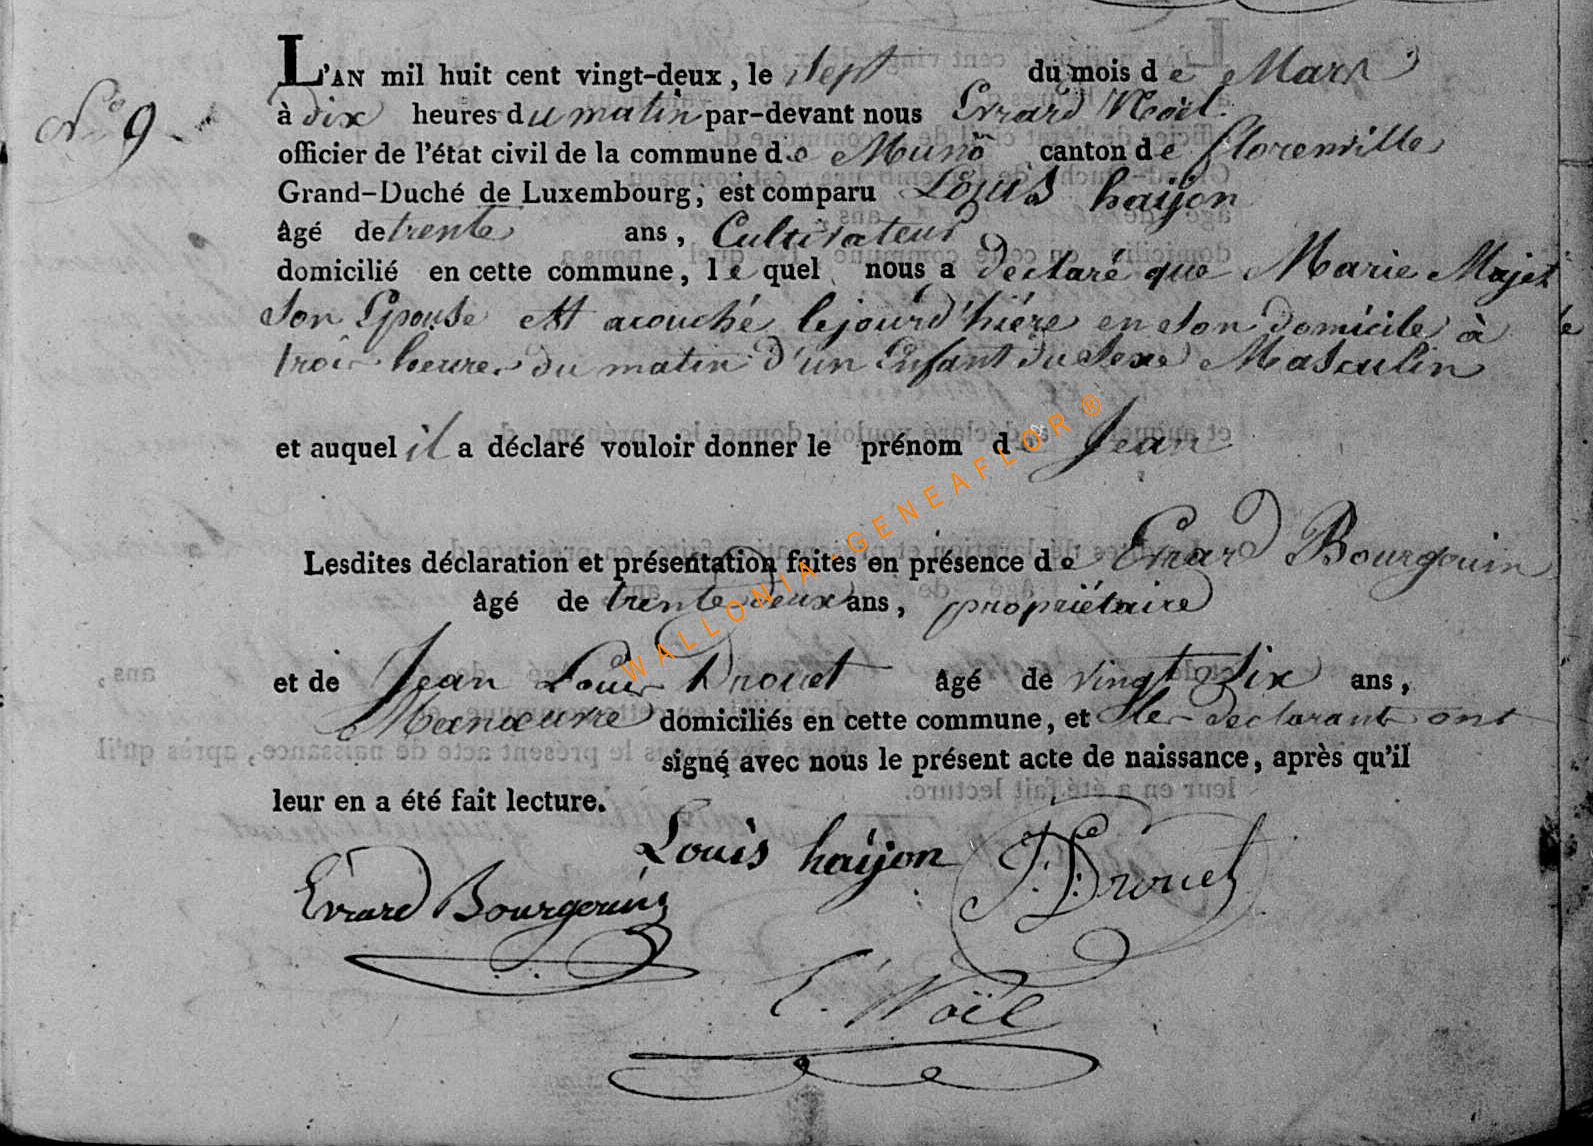 L'AN mil huit cent vingt-deux, le Sept du mois de Mars
N.º 9.
à dix heures du matin par-devant nous Evrard Noël
officier de l'état civil de la commune de Munô canton de florenville
Grand-Duché de Luxembourg, est comparu Louis haijon
âgé de trente ans, Cultivateur
domicilié en cette commune, lequel nous a declaré que Marie Majet
Son Epouse est acouché lejourd'hiére en son domicile à
trois heures du matin d'un Enfant du Sexe Masculin
et auquel il a déclaré vouloir donner le prénom de Jean
Lesdites déclaration et présentation faites en présence de Evrard Bourgouin
âgé de trente deux ans, propriétaire
et de Jean Louis Drouet âgé de vingt Six ans,
Manœuvre domiciliés en cette commune, et les declarant ont
signé avec nous le présent acte de naissance, après qu'il
leur en a été fait lecture.
Louis haijon J. L. Drouet
Evrard Bourgouin
E. Noël
WALLONIA-GENEAFLOR®